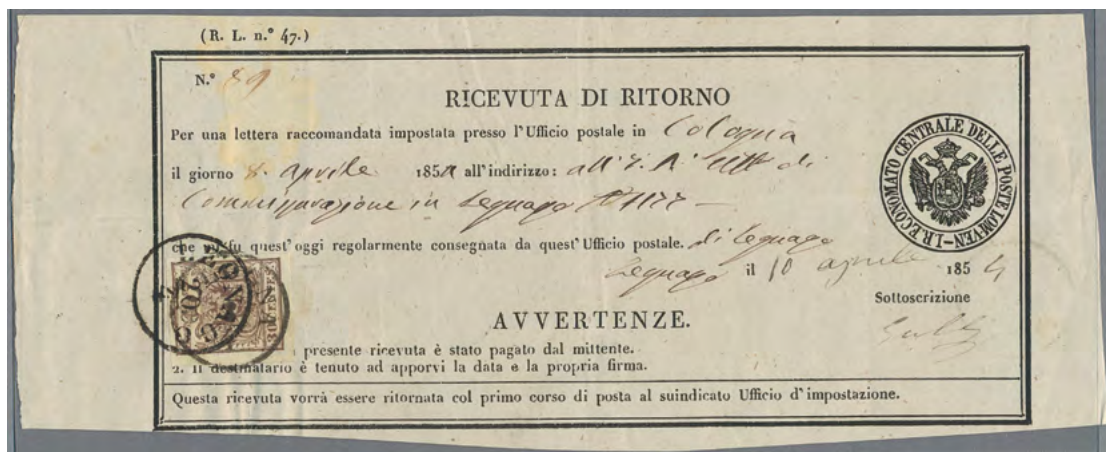 (R. L. n.° 47.)
N.° 89
RICEVUTA DI RITORNO
Per una lettera raccomandata impostata presso l'Ufficio postale in Cologna
il giorno 8. aprile 185 all'indirizzo: all' I. R. Uff. di
Commisurazione in Legnago
che fu quest'oggi regolarmente consegnata da quest'Ufficio postale. di Legnago
Legnago il 10 aprile 1854
Sottoscrizione
I. R. ECONOMATO CENTRALE DELLE POSTE LOM-VEN
LEGNAGO
AVVERTENZE.
presente ricevuta è stato pagato dal mittente.
2. Il destinatario è tenuto ad apporvi la data e la propria firma.
Questa ricevuta vorrà essere ritornata col primo corso di posta al suindicato Ufficio d'impostazione.